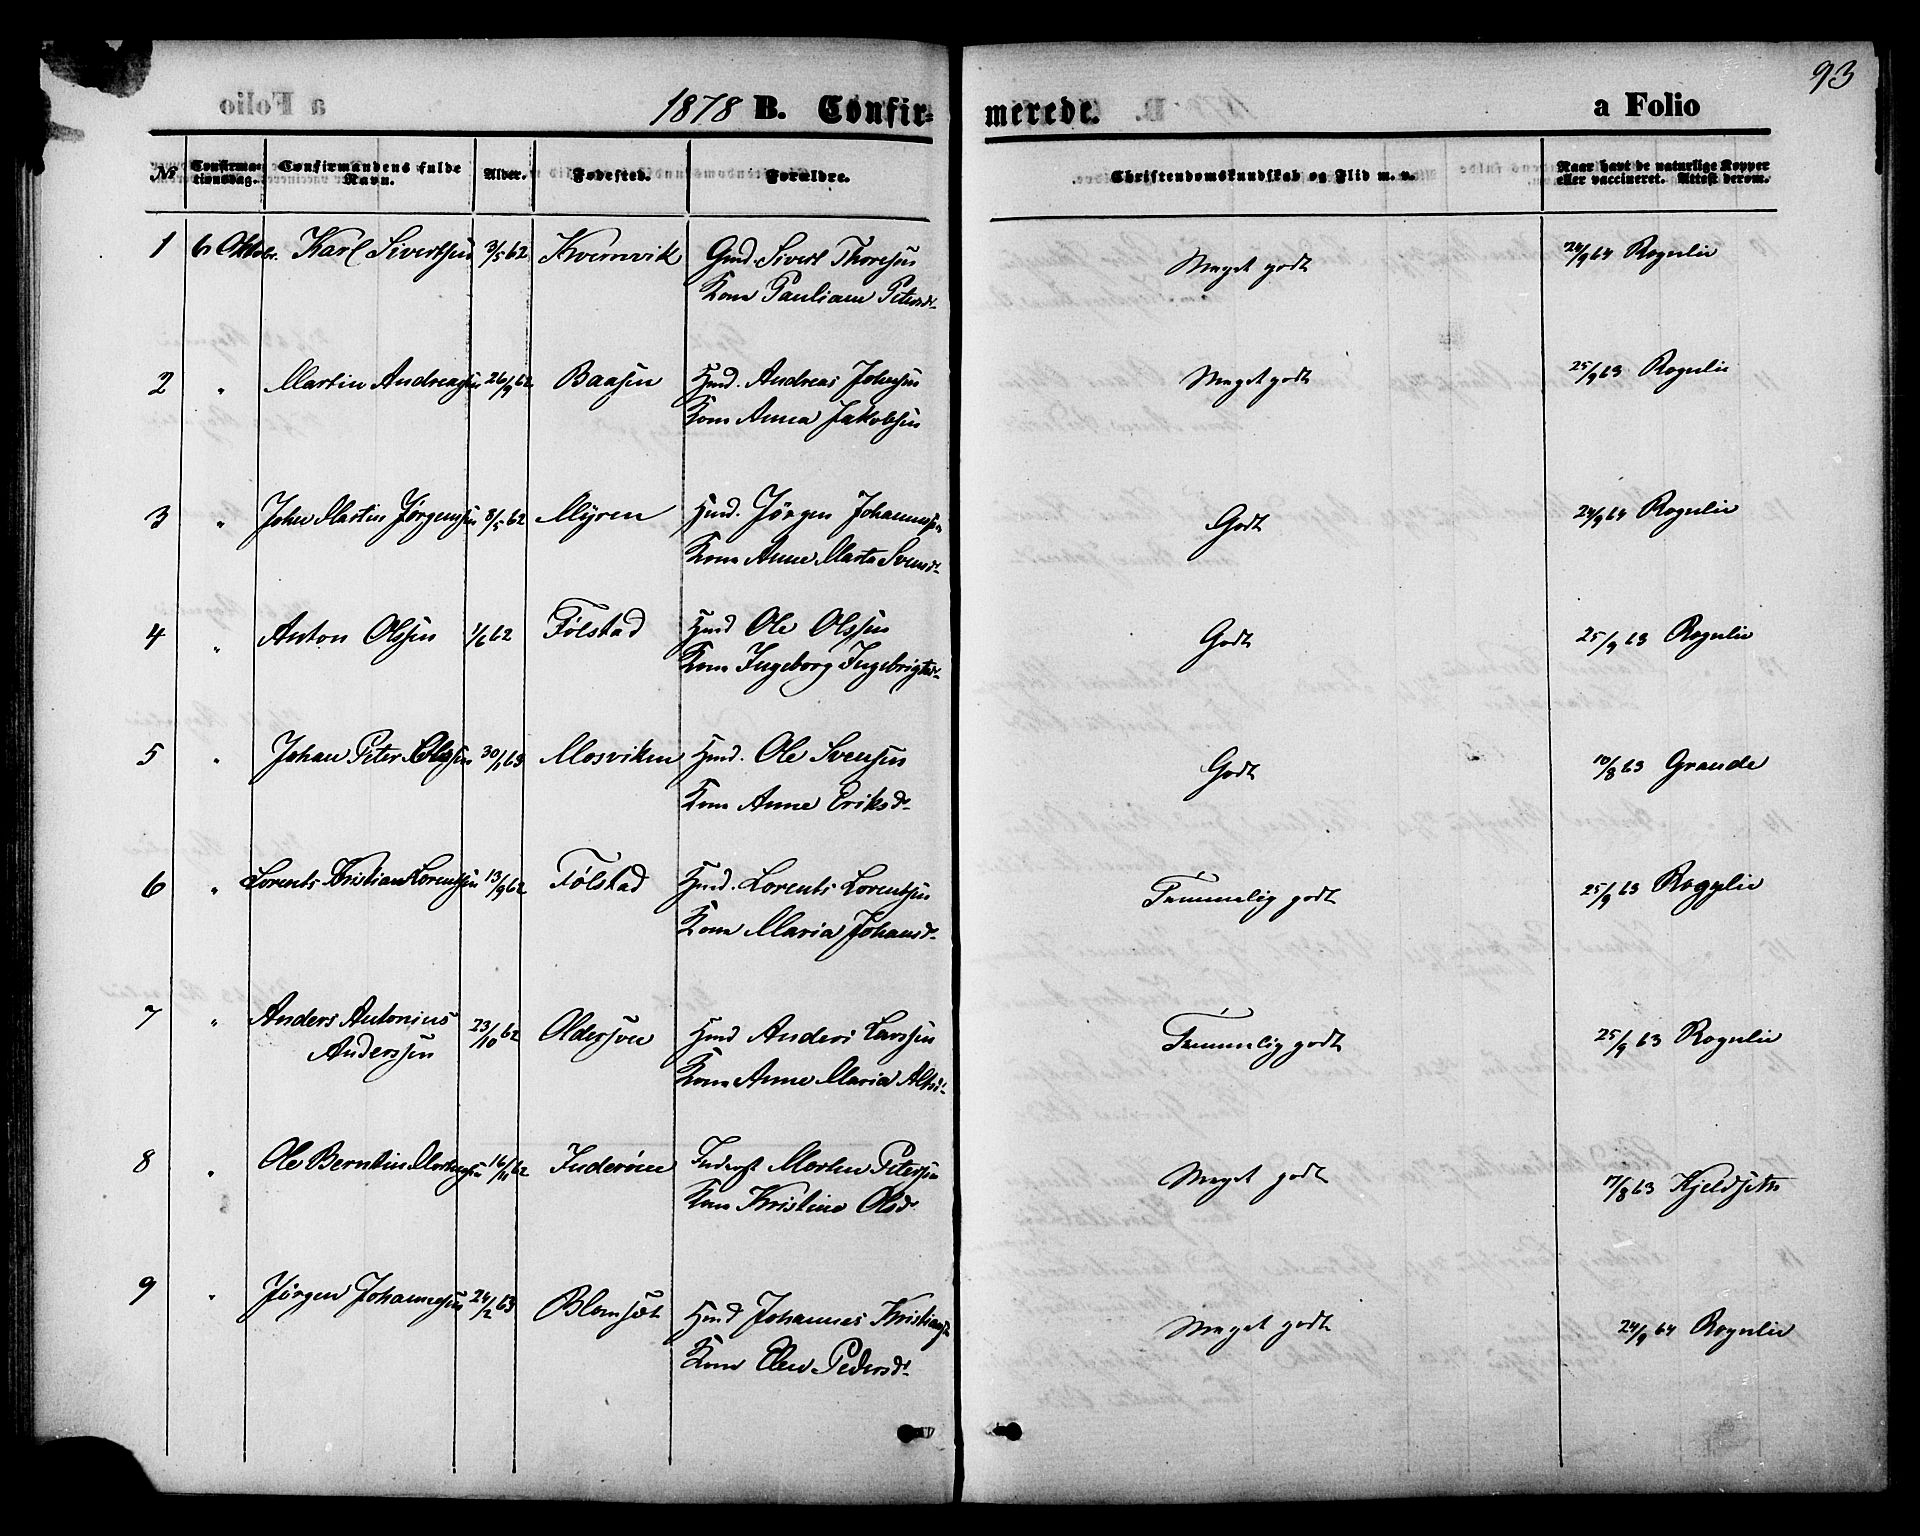 93
1878 B. Confir-
merede.
a Folio
№
Confirma-
tionsdag.
Confirmandens fulde
Navn.
Alder.
Fødested.
Forældre.
Christendomskundskab og Flid m. v.
Naar havt de naturlige Kopper
eller vaccineret. Attest derom.
1 6 Oktobr. Karl Sivertsen 3/5 62 Kvernvik Gmd. Sivert Thoresen Meget godt 24/9 64 Rognlie
Kone Pauliane Petersd.
2 " Martin Andreasen 26/9 62 Baasen Hmd. Andreas Johnsen Meget godt 25/9 63 Rognlie
Kone Anna Jakobsen
3 " John Martin Jørgensen 8/5 62 Myren Hmd. Jørgen Johannesen Godt 24/9 64 Rognlie
Kone Anne Marta Svensd.
4 " Anton Olssen 1/6 62 Følstad Hmd Ole Olssen Godt 25/9 63 Rognlie
Kone Ingeborg Ingebrigtsd.
5 " Johan Peter Olssen 30/1 63 Mosviken Hmd. Ole Svensen Godt 10/8 63 Grande
Kone Anne Eriksd.
6 " Lorents Kristian Lorentsen 13/9 62 Følstad Hmd. Lorents Lorentsen Temmelig godt 25/9 63 Rognlie
Kone Maria Johansd.
7 " Anders Antonius 23/10 62 Oldersøen Hmd Anders Larssen Temmelig godt 25/9 63 Rognlie
Anderssen Kone Anne Maria
8 " Ole Berntin Mortensen 16/11 62 Inderøen Inderst Morten Petersen Meget godt 17/8 63 Kjeldseth
Kone Kristine Olsd.
9 " Jørgen Johannesen 24/2 63 Blomsøt Hmd Johannes Kristiansen Meget godt 24/9 64 Rognlie
Kone Elen Pedersd.